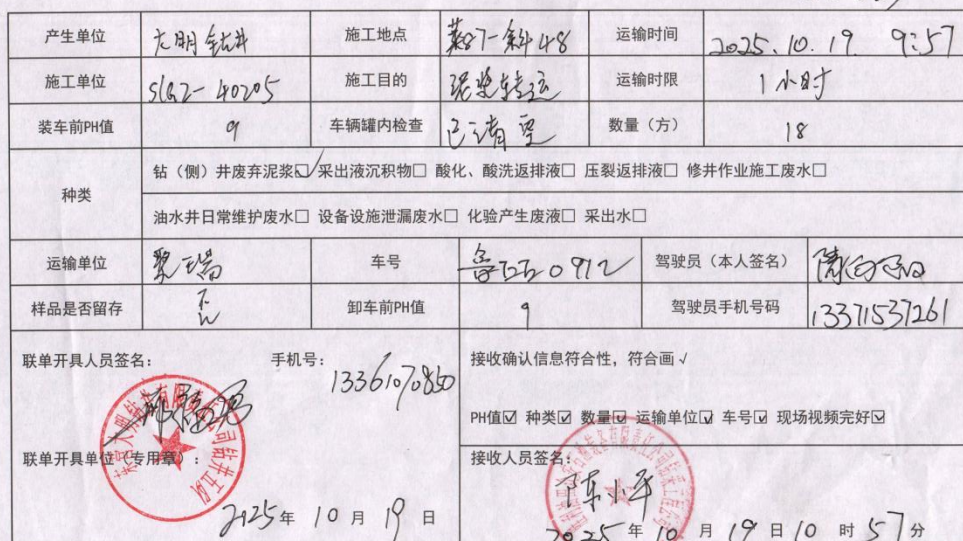 产生单位 大明钻井 施工地点 莱87-斜48 运输时间 2025.10.19 9:57
施工单位 SLG2-40205 施工目的 泥浆转运 运输时限 1小时
装车前PH值 9 车辆罐内检查 已清空 数量（方） 18
种类 钻（侧）井废弃泥浆☑ 采出液沉积物□ 酸化、酸洗返排液□ 压裂返排液□ 修井作业施工废水□
油水井日常维护废水□ 设备设施泄漏废水□ 化验产生废液□ 采出水□
运输单位 聚瑞 车号 0912 驾驶员（本人签名） 陈
样品是否留存 否 卸车前PH值 9 驾驶员手机号码 13371537261
联单开具人员签名： 手机号： 13361070860
接收确认信息符合性，符合画√
PH值☑ 种类☑ 数量☑ 运输单位☑ 车号☑ 现场视频完好☑
联单开具单位（专用章）：
2025年10月19日
接收人员签名： 陈小平
2025年10月19日10时57分